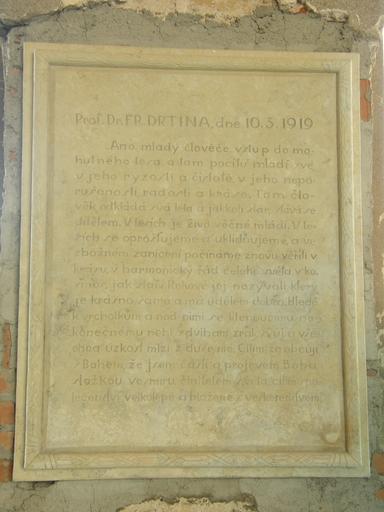 Prof. Dr. FR. DRTINA, dne 10.3.1919
Ano, mladý člověče, vstup do mo-
hutného lesa, a tam pocítíš mládí své
v jeho ryzosti a čistotě, v jeho nepo-
rušenosti, radosti a kráse. Tam člo-
věk odkládá svá léta a jakoby stár, stává se
dítětem. V lesích je živo věčné mládí. V le-
sích se oprošťujeme a uklidňujeme, a ve
zbožném zanícení počínáme znovu věřiti v
krásu, v harmonický řád celého světa v ko-
smos, jak staří Řekové jej nazývali, který
je krásno samo a má údělem dobro. Hledě
k vrcholkům a nad nimi se klenoucímu ne-
konečnému nebi, zdvihám zrak svůj a vše-
chna úzkost mizí z duše mé. Cítím, že obcuji
s Bohem, že jsem částí a projevem Boha,
složkou vesmíru, činitelem světa, cítím
velkolepé a blažené s veškerenstvem.